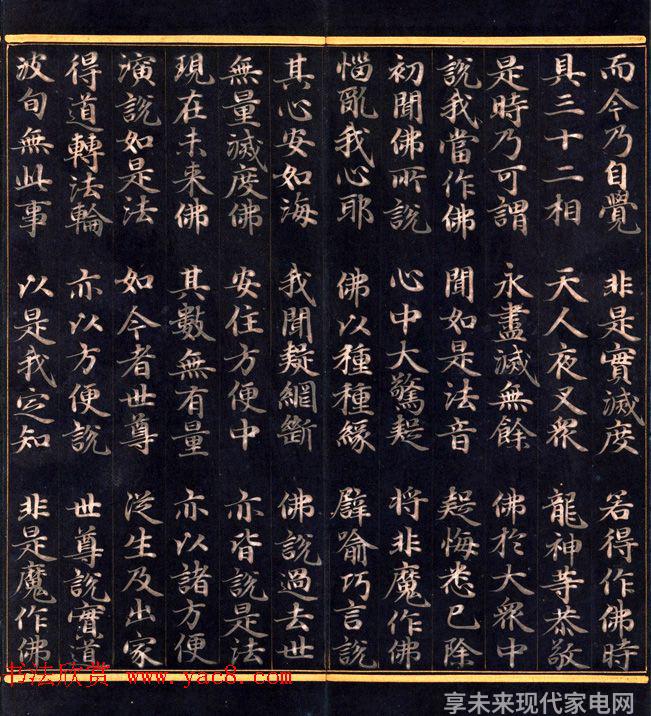 而今乃自覺 非是實滅度 若得作佛時
具三十二相 天人夜叉眾 龍神等恭敬
是時乃可謂 永盡滅無餘 佛於大眾中
說我當作佛 聞如是法音 疑悔悉已除
初聞佛所說 心中大驚疑 將非魔作佛
惱亂我心耶 佛以種種緣 譬喻巧言說
其心安如海 我聞疑網斷 佛說過去世
無量滅度佛 安住方便中 亦皆說是法
現在未來佛 其數無有量 亦以諸方便
演說如是法 如今者世尊 從生及出家
得道轉法輪 亦以方便說 世尊說實道
波旬無此事 以是我定知 非是魔作佛
书法欣赏 www.yac8.com
享未来现代家电网